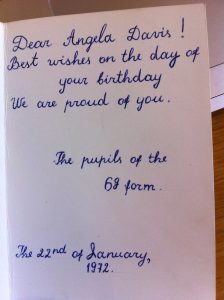 Dear Angela Davis!
Best wishes on the day of
your birthday
We are proud of you.
The pupils of the
6g form.
The 22nd of January,
1972.